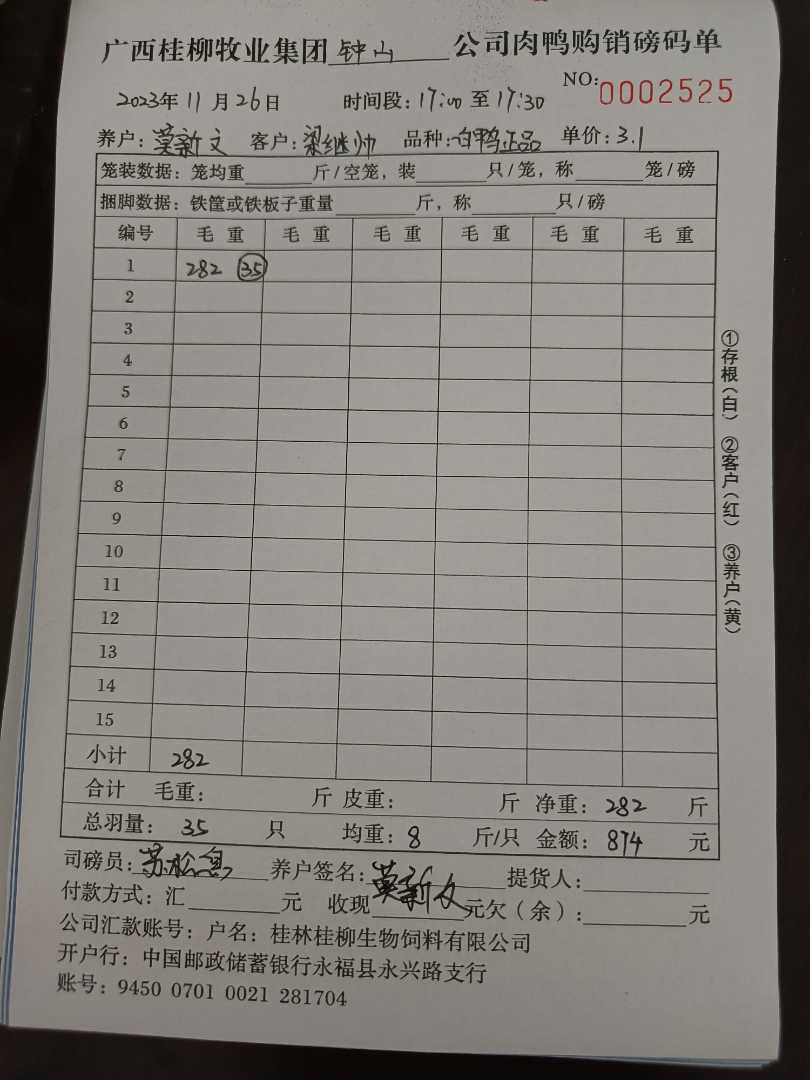 广西桂柳牧业集团钟山公司肉鸭购销磅码单
NO:0002525
2023年11月26日 时间段:17:00至17:30
养户:莫新文 客户:梁继帅 品种:白鸭正品 单价:3.1
笼装数据:笼均重 斤/空笼,装 只/笼,称 笼/磅
捆脚数据:铁筐或铁板子重量 斤,称 只/磅
编号 毛重 毛重 毛重 毛重 毛重 毛重
1 282 35
2
3
4
5
6
7
8
9
10
11
12
13
14
15
小计 282
合计 毛重: 斤 皮重: 斤 净重:282 斤
总羽量:35 只 均重:8 斤/只 金额:874 元
司磅员:苏松 养户签名:莫新文 提货人:
付款方式:汇 元 收现 元欠(余): 元
公司汇款账号:户名:桂林桂柳生物饲料有限公司
开户行:中国邮政储蓄银行永福县永兴路支行
账号:9450 0701 0021 281704
①存根(白) ②客户(红) ③养户(黄)